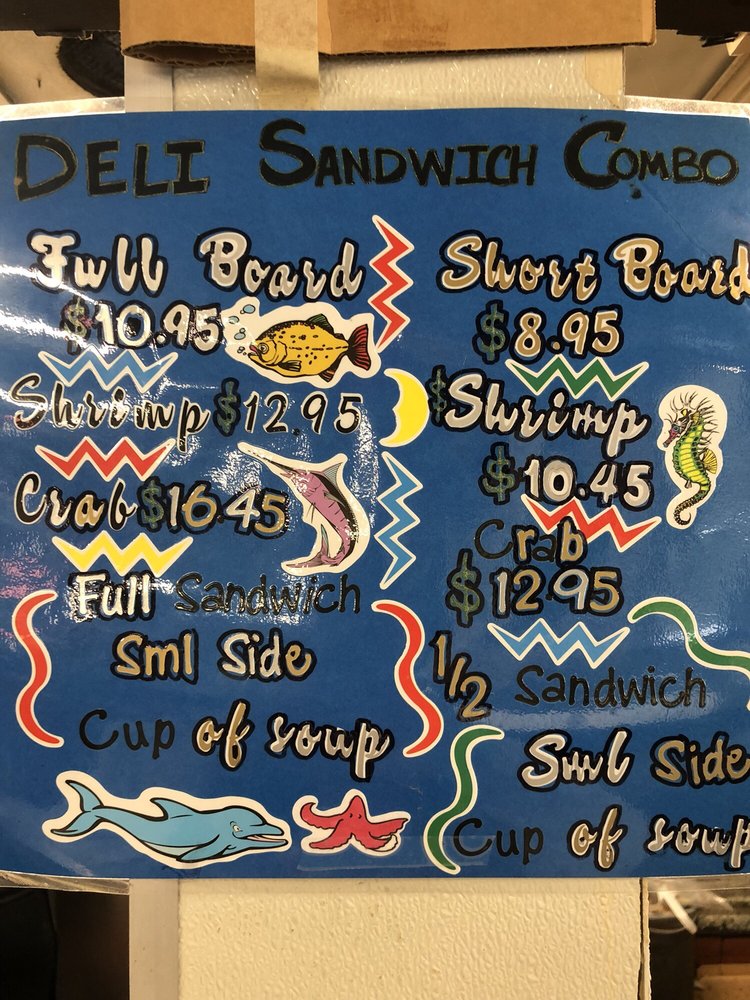 DELI SANDWICH COMBO
Full Board
$10.95
Shrimp $12.95
Crab $16.45
Full Sandwich
Sml Side
Cup of soup
Short Board
$8.95
$Shrimp
$10.45
Crab
$12.95
1/2 Sandwich
Sml Side
Cup of soup